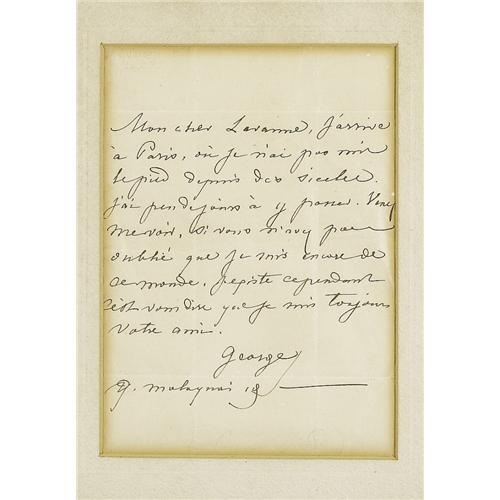 Mon cher Lavanne, j'arrive
à Paris, où je n'ai pas mis
le pied depuis des siecles.
j'ai peu de jours à y passer. Venez
me voir, si vous n'avez pas
oublié que je suis encore de
ce monde. J'existe cependant
c'est vous dire que je suis toujours
votre ami.
George
q. malaquai 19